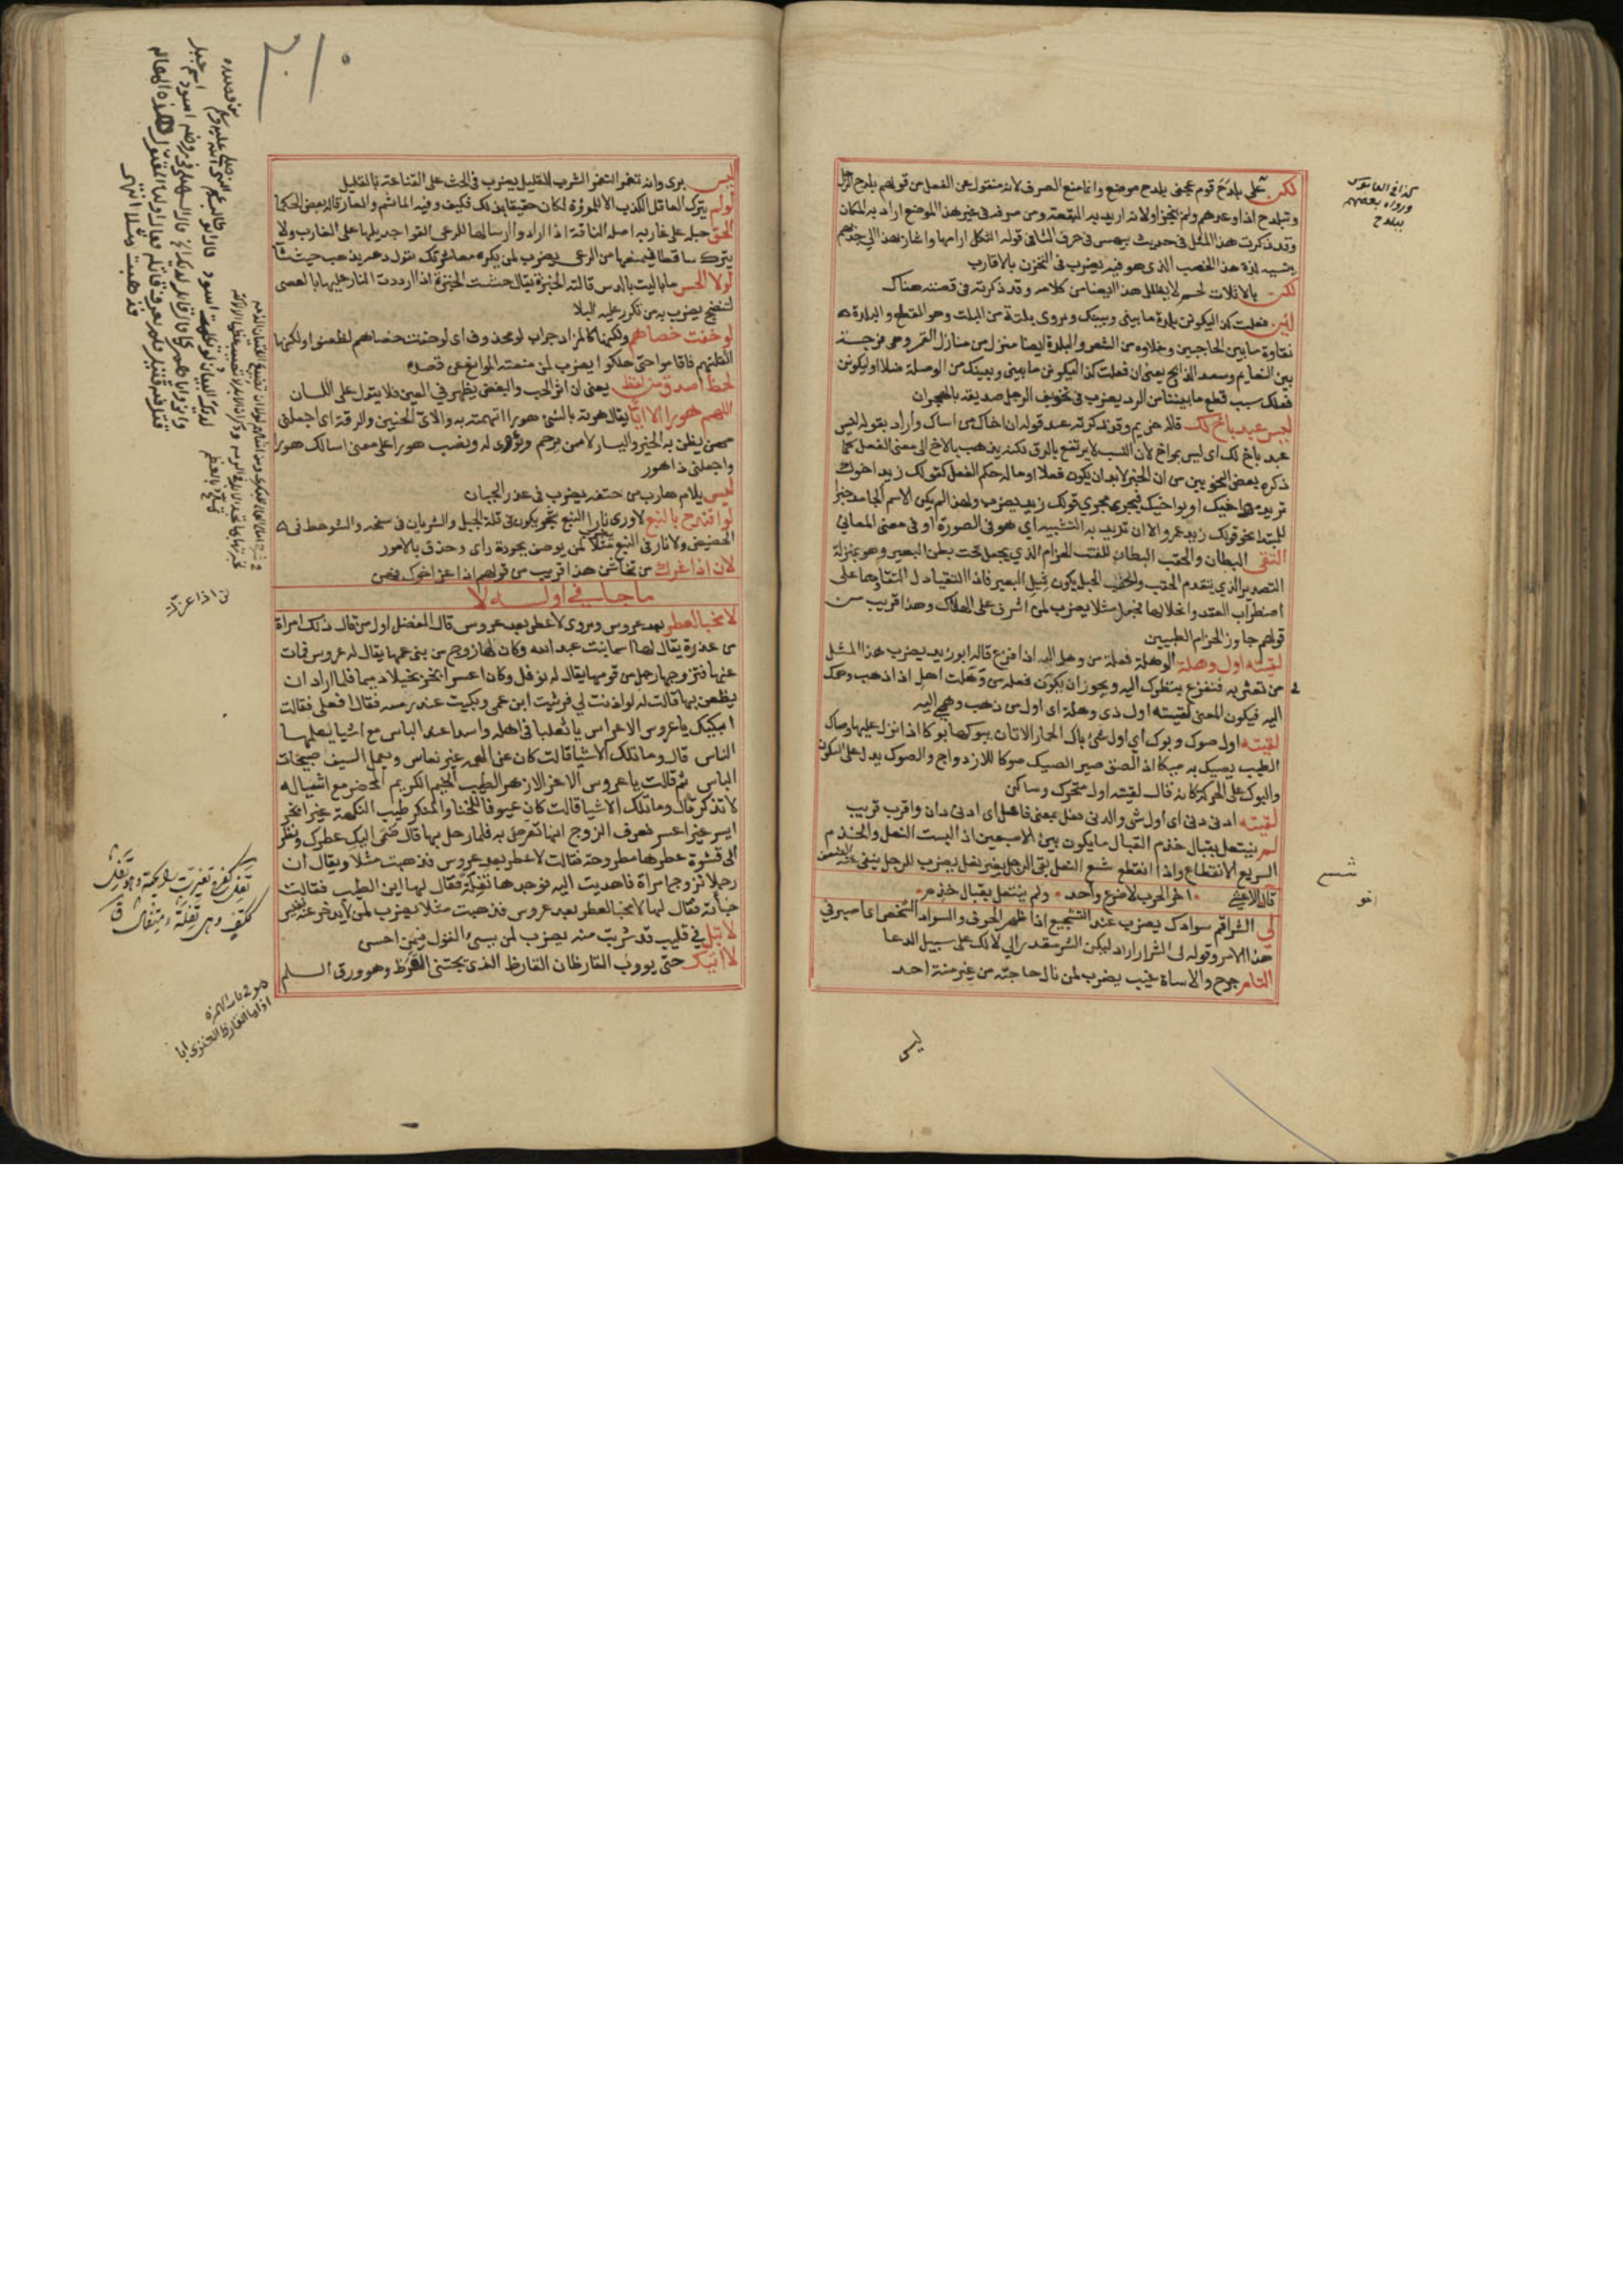 لكن على بلدح قوم عجفى بلدح موضع وانما منع الصرف لانه منقول عن الفعل من قولهم بلدح الرجل
وتبلدح اذا وعد ولم ينجز اولانه اريد به البقعة ومن صرفه فى غير هذا الموضع اراد به المكان
وقد ذكرت هذا المثل فى حديث بيهس فى حرف الثا فى قوله الثكل ارامها واشار بهذا الى جدبهم
بالاثلات لحم لا يظلل هذا ايضا من كلامه وقد ذكرته فى قصته هناك
لئن فعلت كذا ليكونن بلدة ما بينى وبينك ويروى بلتة من البلت وهو القطع والبلدة
نقاوة ما بين الحاجبين وخلاوه من الشعر والبلدة ايضا منزل من منازل القمر وهى فرجة
بين النعايم وسعد الذابح يعنى ان فعلت كذا ليكونن ما بينى وبينك من الوصلة خلا او ليكونن
فعلك سبب قطع ما بيننا من الود يضرب فى تخويف الرجل صديقه بالهجران
ليس عبد باخ لك قاله خزيم وقد ذكرته عند قوله ان اخاك من اساك واراد بقوله ليس
عبد باخ لك اى ليس بمواخ لان النسب لا يرتفع بالرق ولكنه يذهب بالاخ الى معنى الفعل كما
ذكره بعض النحويين من ان الخبر لابد ان يكون فعلا او ما له حكم الفعل كقولك زيد اخوك
تريد مواخيك او يواخيك فيجرى مجرى قولك زيد يضرب ولهذا لم يكن الاسم الجامد خبرا
للمبتدا نحو قولك زيد عمرو الا ان تريد به التشبيه اى هو فى الصورة او فى معنى المعانى
التقى البطان والحقب البطان للقتب الحزام الذي يجعل تحت بطن البعير وهو بمنزلة
التصدير الذي يتقدم الحقب والحقب الحبل يكون ثيل البعير فاذا التقيا دل التقاوهما على
اضطراب العقد وانحلالها فجعل مثلا يضرب لمن اشرف على الهلاك وهذا قريب من
قولهم جاوز الحزام الطبيين
لقيته اول وهلة الوهلة فعلة من وهل اليه اذا فزع قاله ابو زيد يضرب هذا المثل
من تعثر به فتفزع بنظرك اليه ويجوز ان يكون فعله من وهلت اهل اذا ذهب وهمك
اليه فيكون المعنى لقيته اول ذى وهلة اى اول من ذهب وهمى اليه
لقيته اول صوك وبوك اى اول شىء باك الحمار الاتان يبوكها بوكا اذا نزا عليها وصاك
الطيب يصيك به صيكا اذا لصق صير الصيك صوكا للازدواج والصوك يدل على السكون
والبوك على الحركة كانه قال لقيته اول متحرك وساكن
لقيته ادنى دنى اى اول شى والدنى فعيل بمعنى فاعل اى ادنى دان واقرب قريب
لم ينتعل بقبال خذم القبال ما يكون بين الاصبعين اذا لبست النعل والخذم
السريع الانقطاع واذا انقطع شسع النعل بقى الرجل بغير نعل يضرب للرجل ينفى عنه الضعف
قال الاعشى اخو الحرب لا ضرع واحد ولم ينتعل بقبال خذم
لى الشر اقم سوادك يضرب عند التشجيع اذا ظهر الخوف والسواد الشخص اى اصبر فى
هذا الامر وقوله لى الشر اراد ليكن الشر مقدرا لى لا لك على سبيل الدعا
التام جرح والاساة غيب يضرب لمن نال حاجته من غير منة احد
ليس
كذا فى القاموس
ورواه بعضهم
ببلدح
شسع
اخو
٢١٠
ليس برى وانه تغمر التغمر الشرب القليل يضرب فى الحث على القناعة بالقليل
لو لم يترك العاقل الكذب الا للمروة لكان حقيقا بذلك فكيف وفيه الماثم والعار قاله بعض الحكما
الق حبله على غاربه اصله الناقة اذا ارادوا ارسالها للرعى القوا جديلها على الغارب ولا
يترك ساقطا فيمنعها من الرعى يضرب لمن يكره معاشرتك تقول دعه يذهب حيث شا
لولا الحس ما باليت بالدس قالته الخبزة يقال حششت الخبزة اذا رددت النار عليها بالعصى
لتنضج يضرب به من تكرر عليه البلا
لو خفت خصاهم ولكنها كالمزاد جواب لو محذوف اى لو خفت خصاهم لظعنوا ولكنها
اثقلتهم فاقاموا حتى هلكوا يضرب لمن منعته الموانع عن قصده
لحظ اصدق من لفظ يعنى ان اثر الحب والبغض يظهر فى العين فلا يقول على اللسان
اللهم هورا لا ايا يقال هرته بالشىء هورا اتهمته به والاى الحنين والرقة اى اجعلنى
ممن يظن به الخير واليسار لا ممن يرحم ويوى له ونصب هورا على معنى اسالك هورا
واجعلنى ذا هور
ليس يلام هارب من حتفه يضرب فى عذر الجبان
لو اقتدح بالنبع لاورى نارا النبع شجر يكون فى قلة الجبل والشريان فى سفحه والشوحط فى
الحضيض ولا نار فى النبع مثلا لمن يوصف بجودة راى وحذق بالامور
لان اذا عزك من تخاشن هذا قريب من قولهم اذا عز اخوك فهن
ما جا فى اوله لا
لا مخبا لعطر بعد عروس ويروى لا عطر بعد عروس قال المفضل اول من قال ذلك امراة
من عذرة يقال لها اسما بنت عبد الله وكان لها زوج من بنى عمها يقال له عروس فمات
عنها فتزوجها رجل من قومها يقال له نوفل وكان اعسر ابخر بخيلا دميما فلما اراد ان
يظعن بها قالت له لو اذنت لي فرثيت ابن عمى وبكيت عند رمسه فقال افعلى فقالت
ابكيك يا عروس الاعراس يا ثعلبا فى اهله واسدا عند الباس مع اشيا ليس يعلمها
الناس قال وما تلك الاشيا قالت كان عن الهمة غير نعاس ويعمل السيف صبيحات
الباس ثم قالت يا عروس الاغر الازهر الطيب الخيم الكريم المحضر مع اشيا له
لا تذكر قال وما تلك الاشيا قالت كان عيوفا للخنا والمنكر طيب النكهة غير ابخر
ايسر غير اعسر فعرف الزوج انها تعرض به فلما رحل بها قال ضمى اليك عطرك ونظر
الى قشوة عطرها مطروحة فقالت لا عطر بعد عروس فذهبت مثلا ويقال ان
رجلا تزوج امراة فاهديت اليه فوجدها تفلة فقال لها اين الطيب فقالت
خباته فقال لها لا مخبا لعطر بعد عروس فذهبت مثلا يضرب لمن لا يدخر عنه نفيس
لا تبل في قليب قد شربت منه يضرب لمن يسىء القول فيمن احسن
لا اتيك حتى يووب القارظان القارظ الذى يجتنى القرظ وهو ورق السلم
لن اذا عزك
تفل كفرح تغيرت رائحته وهو تفل
ككتف وهى تفلة ومتفال ق
هو فى باب الهمزه
اذا ما القارظ العنزى ابا
فذهبت مثلا انتهى